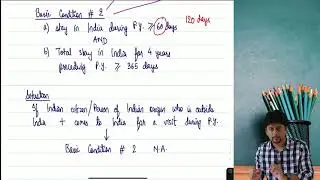 Basic Condition # 2
120 days
a) stay in India during P.Y. ≥ 60 days
AND
b) Total stay in India for 4 years
preceding P.Y. ≥ 365 days
If Indian citizen/Person of Indian origin who is outside
India + comes to India for a visit during P.Y.
Basic Condition # 2 N.A.